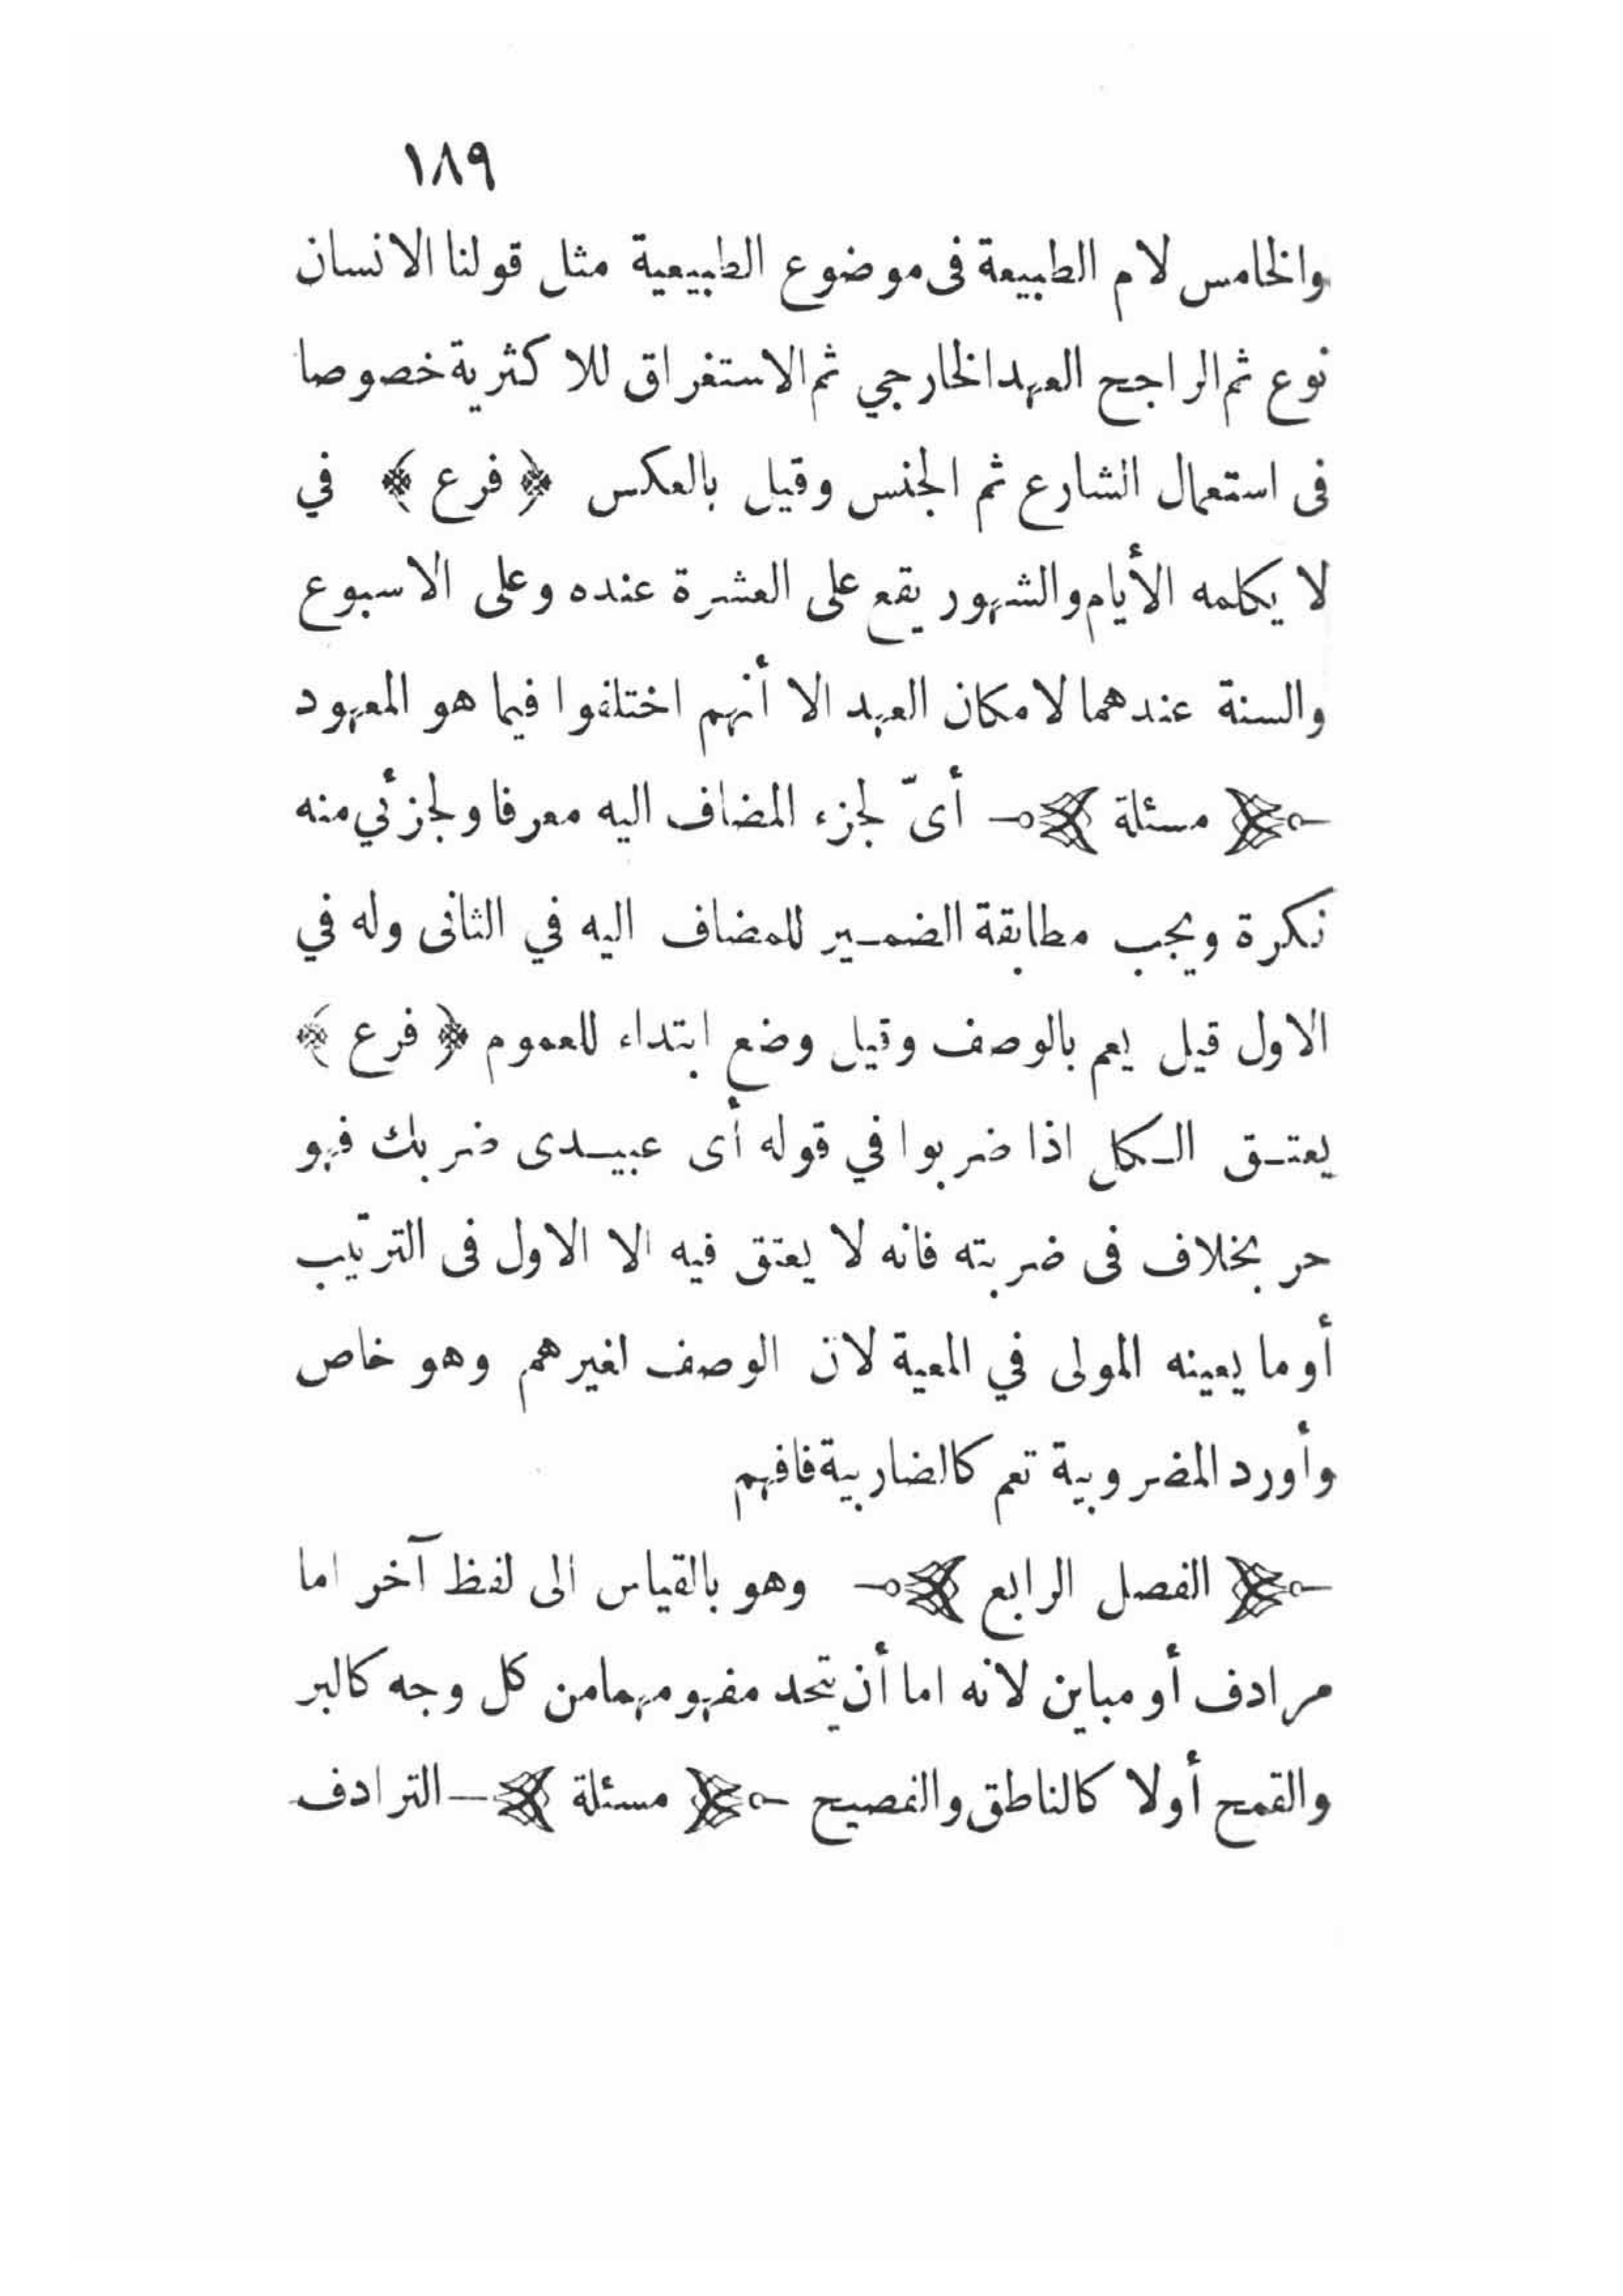 ١٨٩
والخامس لام الطبيعة فى موضوع الطبيعية مثل قولنا الانسان
نوع ثم الراجح العهد الخارجي ثم الاستغراق للاكثرية خصوصا
فى استعمال الشارع ثم الجنس وقيل بالعكس ﴿ فرع ﴾ في
لا يكلمه الأيام والشهور يقع على العشرة عنده وعلى الاسبوع
والسنة عندهما لامكان العهد الا أنهم اختلفوا فيما هو المعهود
﴿ مسئلة ﴾ أىّ لجزء المضاف اليه معرفا ولجزئي منه
نكرة ويجب مطابقة الضمير للمضاف اليه في الثانى وله في
الاول قيل يعم بالوصف وقيل وضع ابتداء للعموم ﴿ فرع ﴾
يعتق الكل اذا ضربوا في قوله أى عبيدى ضربك فهو
حر بخلاف فى ضربته فانه لا يعتق فيه الا الاول فى الترتيب
أو ما يعينه المولى في المعية لان الوصف لغيرهم وهو خاص
وأورد المضروبية تعم كالضاربية فافهم
﴿ الفصل الرابع ﴾ وهو بالقياس الى لفظ آخر اما
مرادف أو مباين لانه اما أن يتحد مفهومهما من كل وجه كالبر
والقمح أولا كالناطق والفصيح ﴿ مسئلة ﴾ الترادف